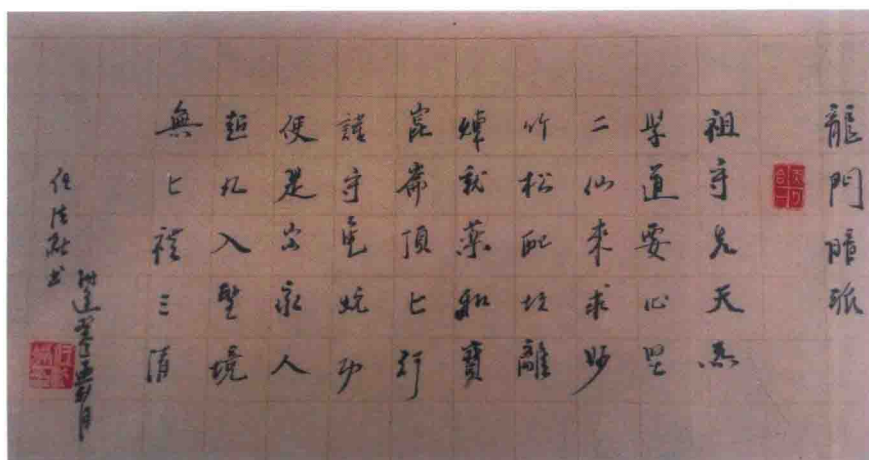 龍門暗派
祖守先天炁
学道要心坚
二仙来求妙
竹松配坎離
就藥和寶
崑崙頂上行
謹守功
便是出家人
超凡入聖境
無上禮三清
任法融书